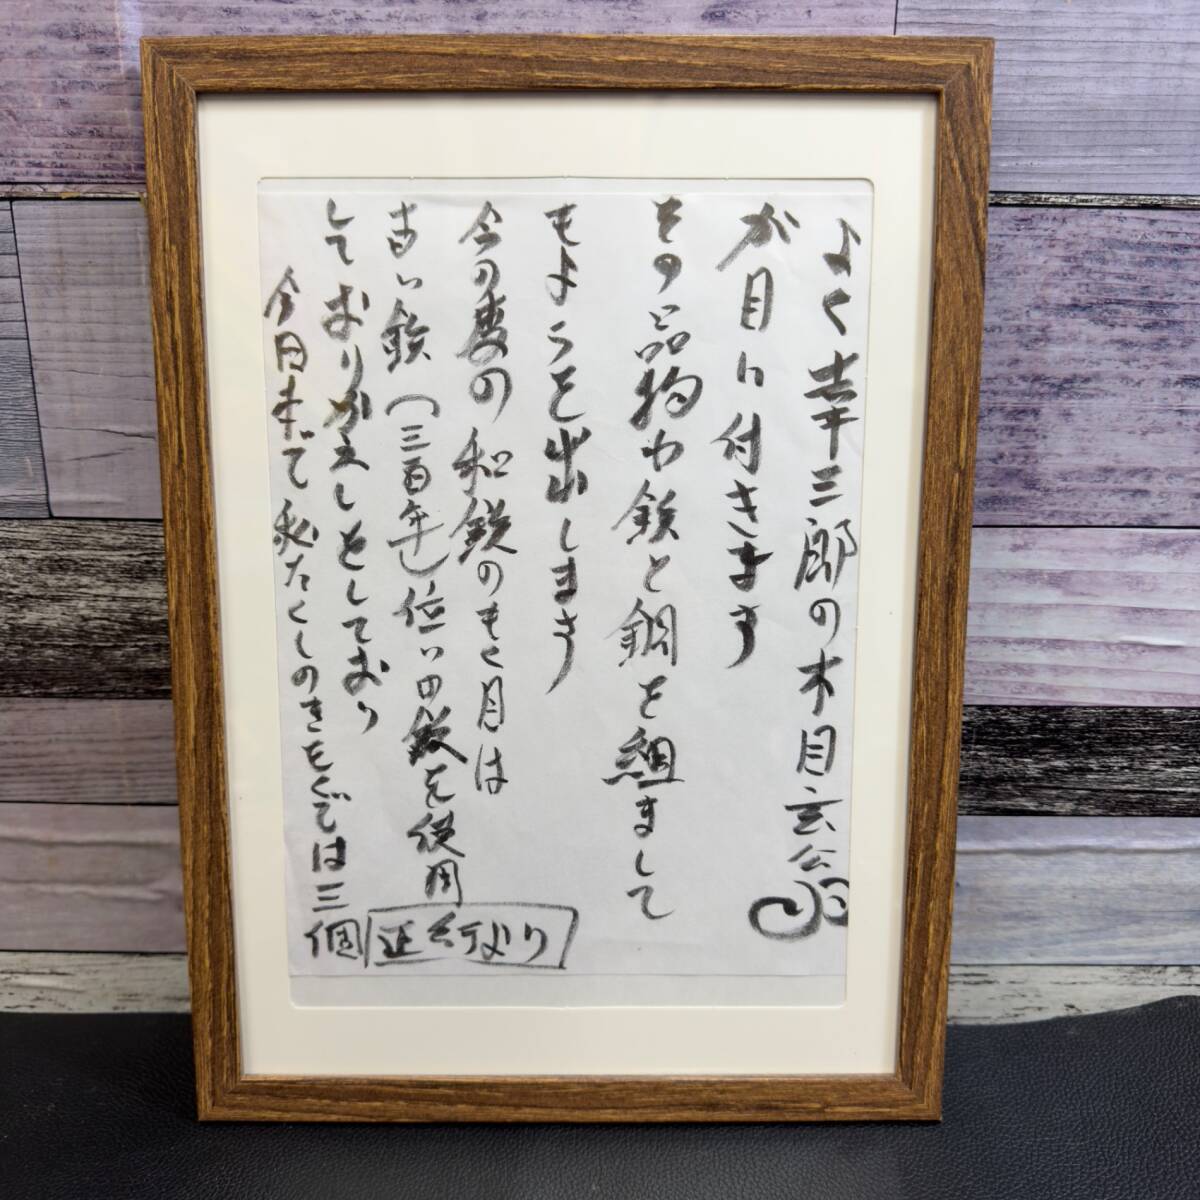 よく幸三郎の木目玄公
が目に付きます
その品物わ鉄と鋼を組まして
もようを出します
今の度の和鉄のもく目は
古い鉄(三百年)位いの鉄を使用
しておりかえしとしており
今日まで私たくしのきもくでは三個
正行より